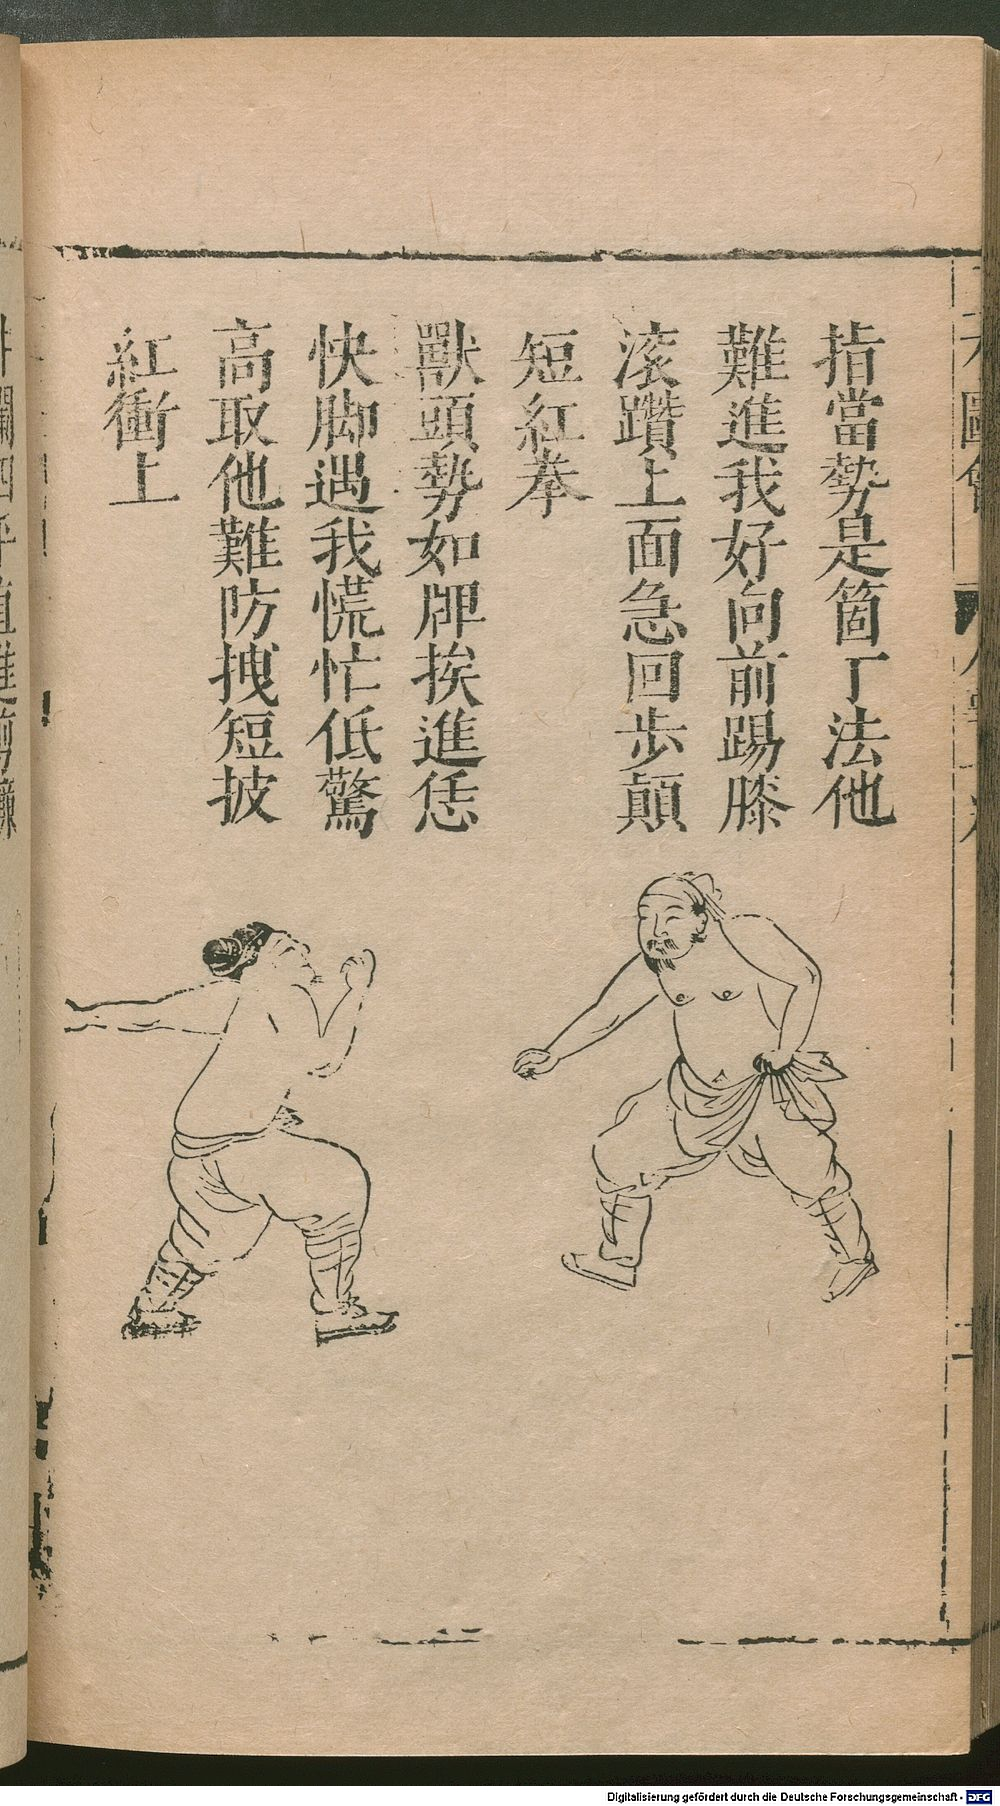 指當勢是箇丁法他
難進我好向前踢膝
滚躦上面急回步顛
短紅拳
獸頭勢如牌挨進恁
快脚遇我慌忙低驚
高取他難防拽短披
紅衝上
Digitalisierung gefördert durch die Deutsche Forschungsgemeinschaft - DFG